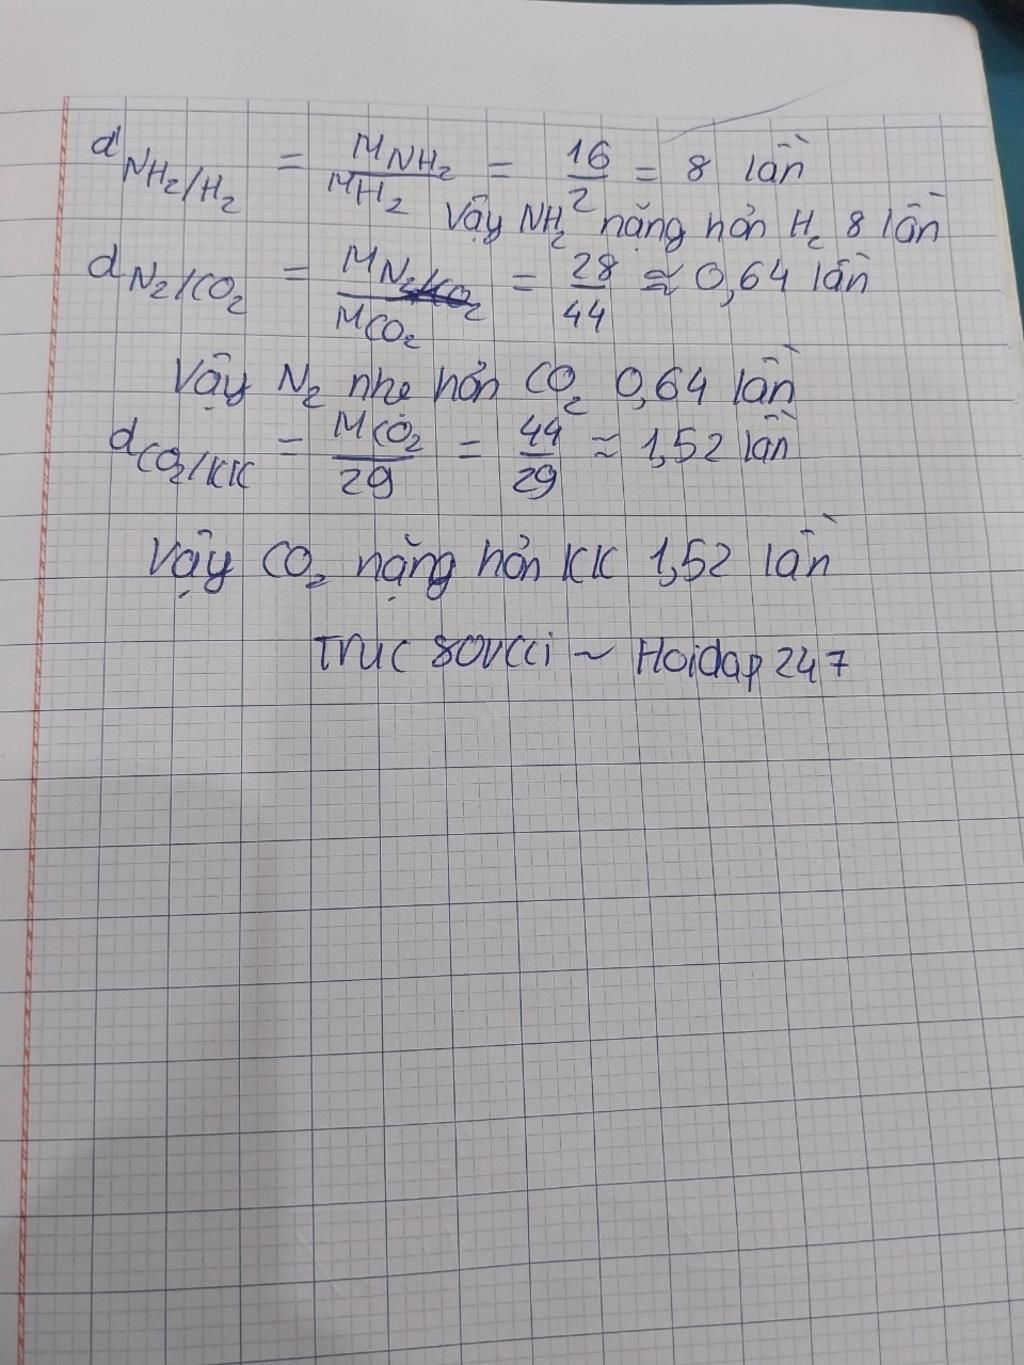 d NH₂/H₂ = M NH₂ / M H₂ = 16/2 = 8 lần
Vậy NH₂ nặng hơn H₂ 8 lần
d N₂/CO₂ = M N₂ / M CO₂ = 28/44 ≈ 0,64 lần
Vậy N₂ nhẹ hơn CO₂ 0,64 lần
d CO₂/KK = M CO₂ / 29 = 44/29 ≈ 1,52 lần
Vậy CO₂ nặng hơn KK 1,52 lần
~ Hoidap247